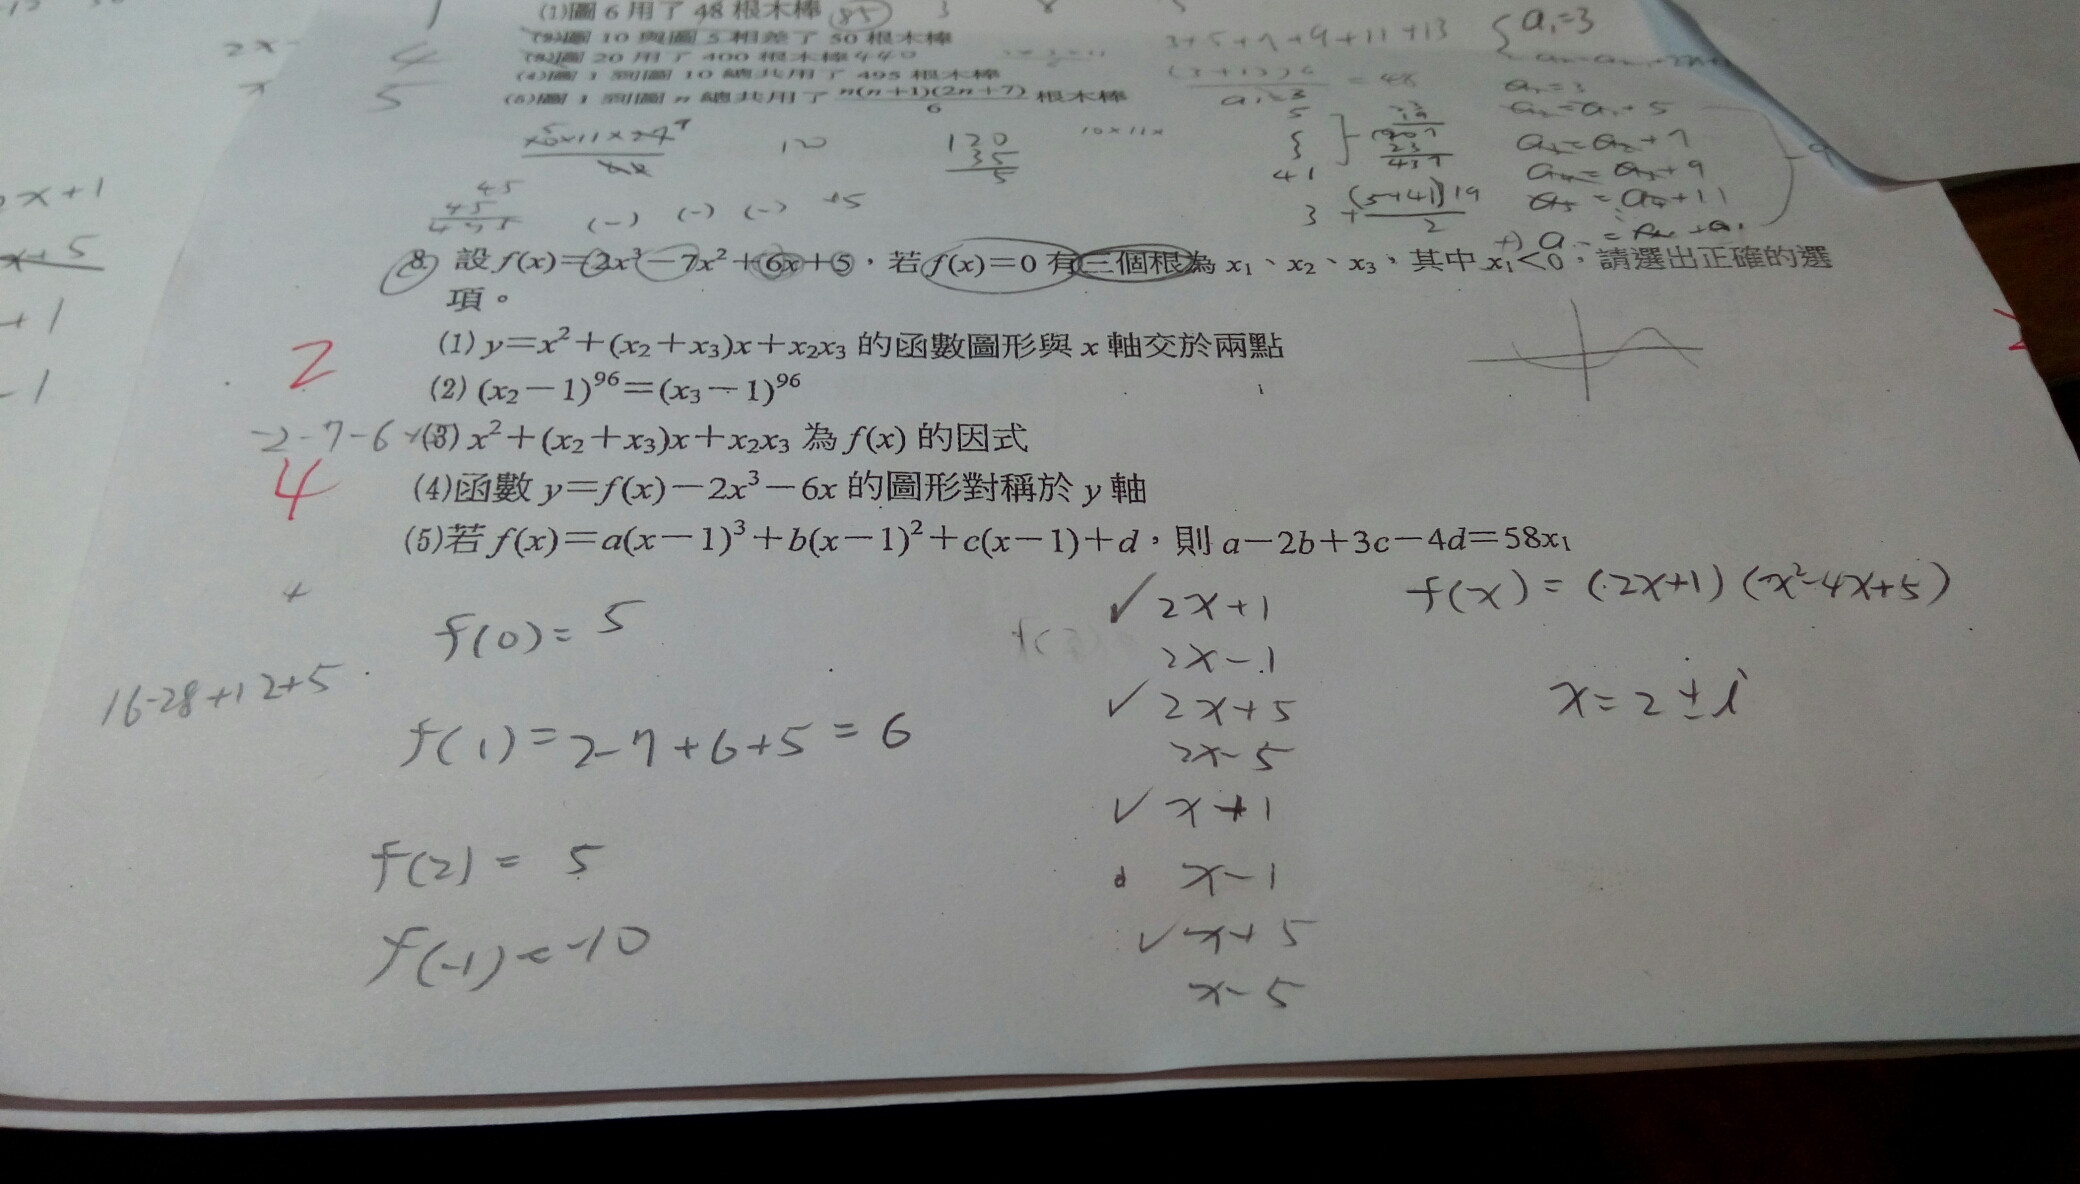 (1)圖 6 用了 48 根木棒 85
(2)圖 10 與圖 5 相差了 50 根木棒
(3)圖 20 用了 400 根木棒 440
(4)圖 1 到圖 10 總共用了 495 根木棒
(5)圖 1 到圖 n 總共用了 n(n+1)(2n+7)/6 根木棒
3+5+7+9+11+13
a₁=3
= 48
a₁=3
a₂=a₁+5
a₃=a₂+7
a₄=a₃+9
a₅=a₄+11
120
35
5
10×11×
41
3 + (5+41)19/2
437
45
(-) (-) (-) +5
2x
4
5
x+1
x+5
+1
-1
8. 設 f(x)=2x³−7x²+6x+5,若 f(x)=0 有三個根為 x₁、x₂、x₃,其中 x₁<0,請選出正確的選
項。
(1) y=x²+(x₂+x₃)x+x₂x₃ 的函數圖形與 x 軸交於兩點
2
(2) (x₂−1)⁹⁶=(x₃−1)⁹⁶
-2-7-6+
(3) x²+(x₂+x₃)x+x₂x₃ 為 f(x) 的因式
4
(4)函數 y=f(x)−2x³−6x 的圖形對稱於 y 軸
(5)若 f(x)=a(x−1)³+b(x−1)²+c(x−1)+d,則 a−2b+3c−4d=58x₁
f(0)= 5
16-28+12+5
f(1)=2-7+6+5=6
f(2)= 5
f(-1)=-10
✓ 2x+1
2x-1
✓ 2x+5
2x-5
✓ x+1
x-1
✓ x+5
x-5
f(x)=(2x+1)(x²-4x+5)
x=2±i